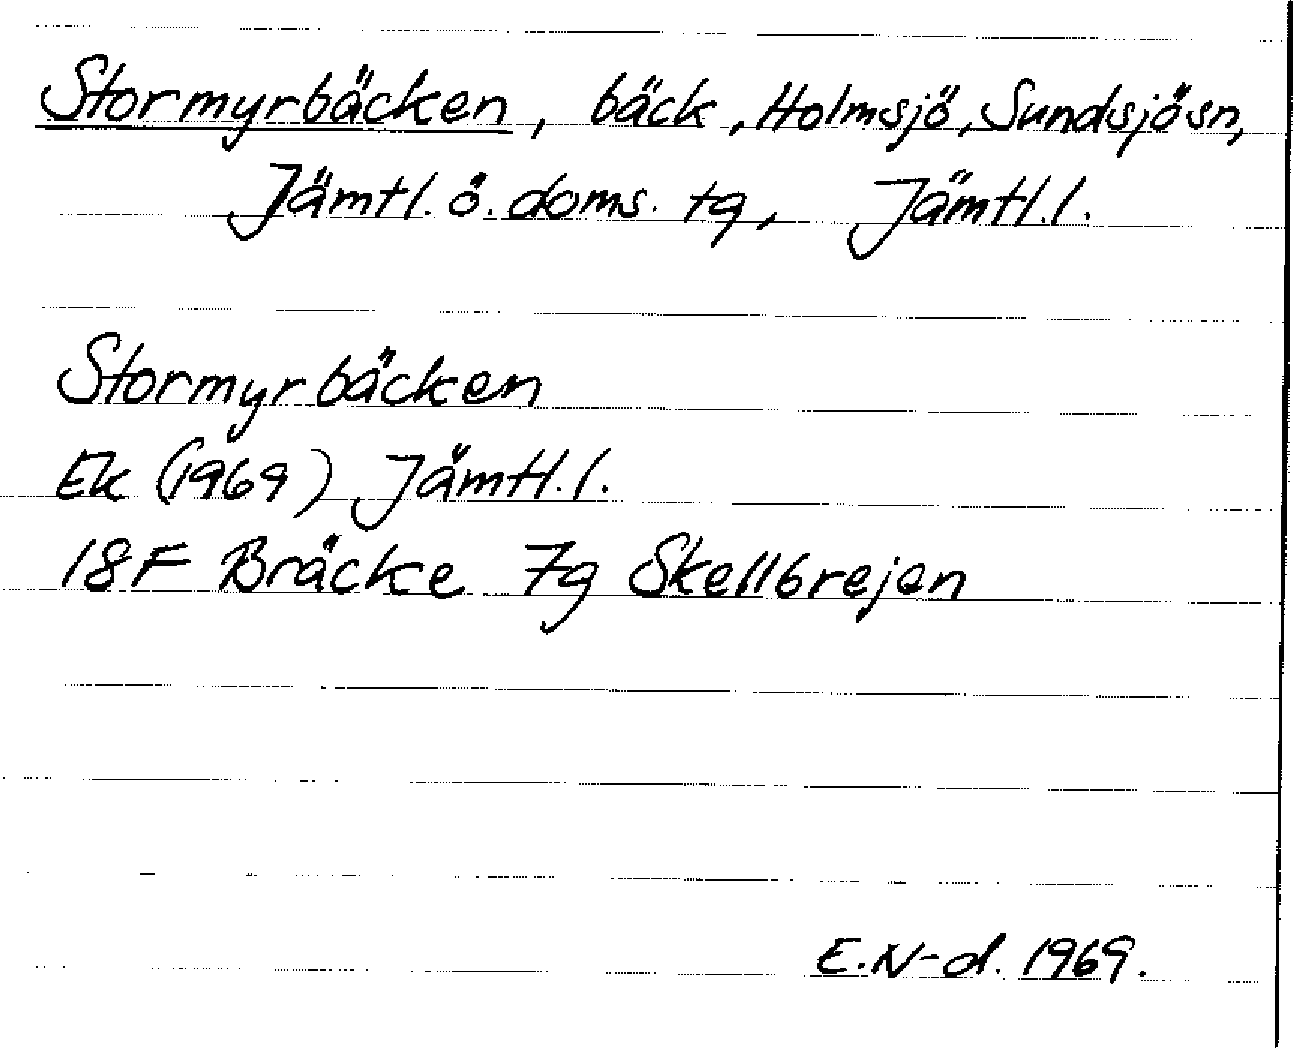 Stormyrbäcken, bäck, Holmsjö, Sundsjösn,
Jämtl. ö. doms. tg, Jämtl.l.
Stormyrbäcken
Ek (1969) Jämtl.l.
18F Bräcke 7g Skellbrejen
E.N-d. 1969.